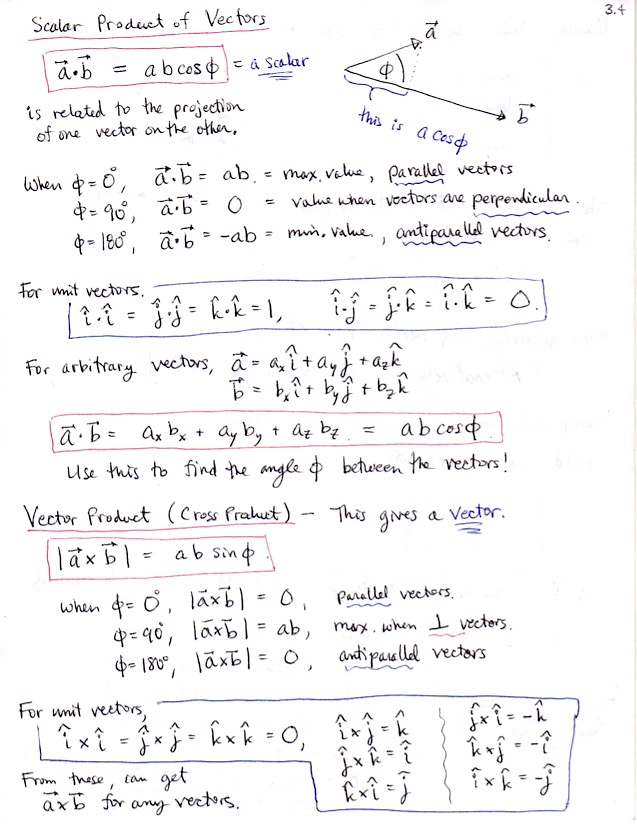 3.4
Scalar Product of Vectors
a⃗·b⃗ = ab cosϕ = a scalar
is related to the projection
of one vector on the other.
a⃗
ϕ
b⃗
this is a cosϕ
When ϕ = 0°, a⃗·b⃗ = ab = max. value, parallel vectors
ϕ = 90°, a⃗·b⃗ = 0 = value when vectors are perpendicular.
ϕ = 180°, a⃗·b⃗ = -ab = min. value, antiparallel vectors.
For unit vectors.
î·î = ĵ·ĵ = k̂·k̂ = 1, î·ĵ = ĵ·k̂ = î·k̂ = 0.
For arbitrary vectors, a⃗ = aₓî + a_yĵ + a_zk̂
b⃗ = bₓî + b_yĵ + b_zk̂
a⃗·b⃗ = aₓbₓ + a_yb_y + a_zb_z = ab cosϕ
Use this to find the angle ϕ between the vectors!
Vector Product (Cross Product) – This gives a vector.
|a⃗ x b⃗| = ab sinϕ
when ϕ = 0°, |a⃗xb⃗| = 0, parallel vectors.
ϕ = 90°, |a⃗xb⃗| = ab, max. when ⊥ vectors.
ϕ = 180°, |a⃗xb⃗| = 0, antiparallel vectors
For unit vectors,
î x î = ĵ x ĵ = k̂ x k̂ = 0,
î x ĵ = k̂
ĵ x k̂ = î
k̂ x î = ĵ
ĵ x î = -k̂
k̂ x ĵ = -î
î x k̂ = -ĵ
From these, can get
a⃗xb⃗ for any vectors.